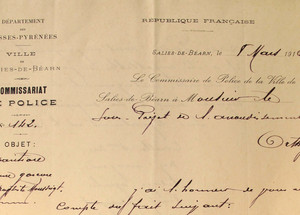 DÉPARTEMENT
RÉPUBLIQUE FRANÇAISE
SSES-PYRÉNÉES
VILLE
IES-DE-BÉARN
COMMISSARIAT
E POLICE
142
OBJET :
SALIES-DE-BÉARN, le 8 Mars 191
Le Commissaire de Police de la Ville de
Salies-de-Béarn à Monsieur le
Sous Préfet de l'arrondissement
Orth
j'ai l'honneur de vous
compte du fait suivant :